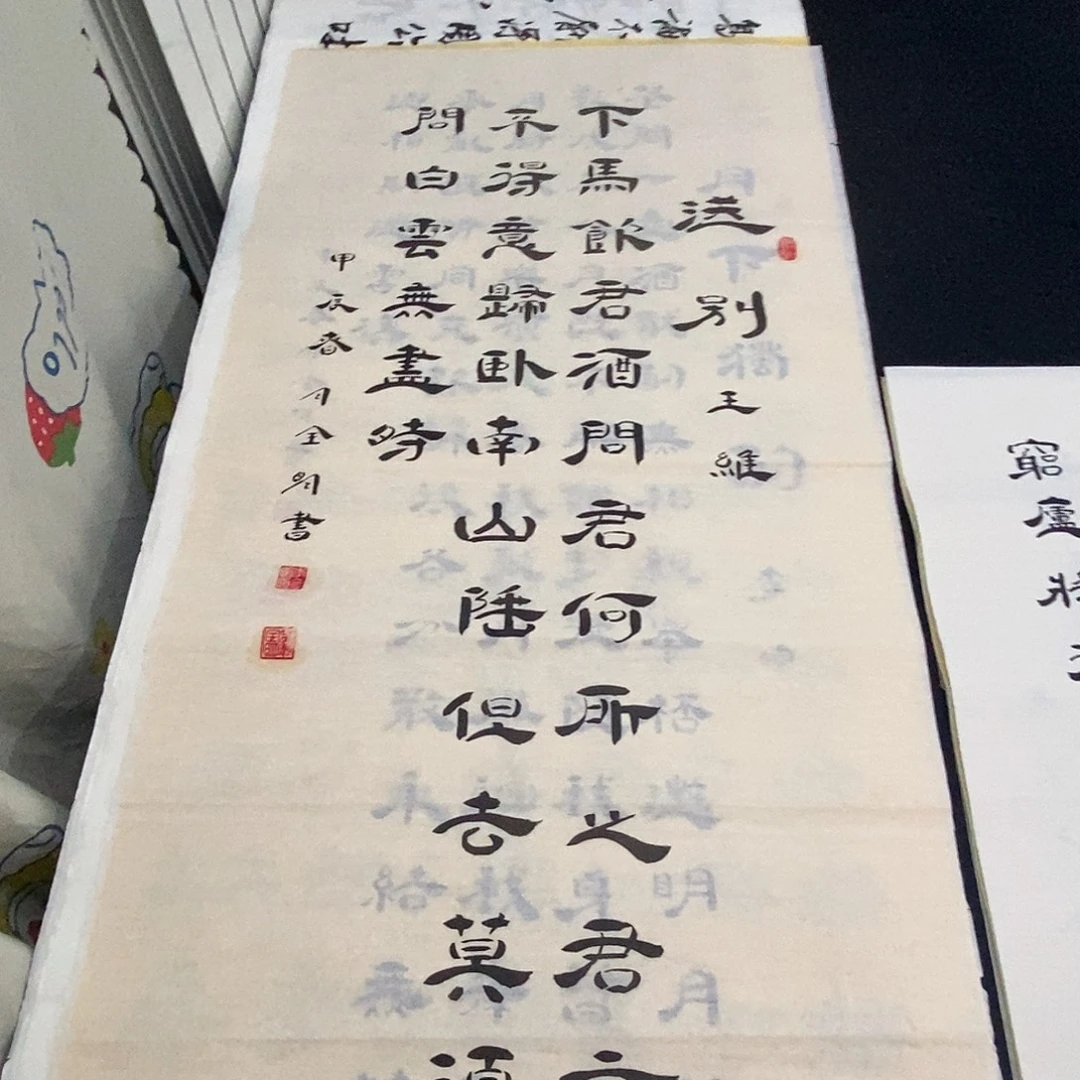 送別 王維
下馬飲君酒問君何所之君
不得意歸臥南山陲但去莫
問白雲無盡時
甲辰春月全明書
窮廬將